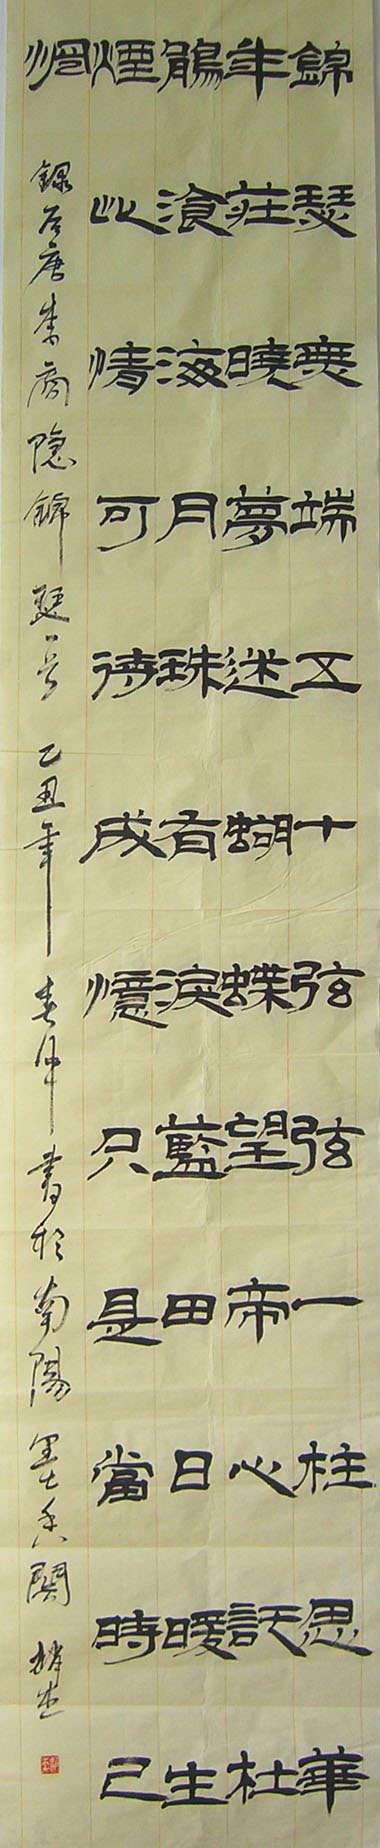 錦瑟無端五十弦弦一柱思華
年莊曉夢迷蝴蝶望帝心託杜
鵑滄海月珠有淚藍田日暖生
煙此情可待成憶只是當時已
惘
錄唐李商隐錦瑟一首 乙丑年春書於南陽墨香閣